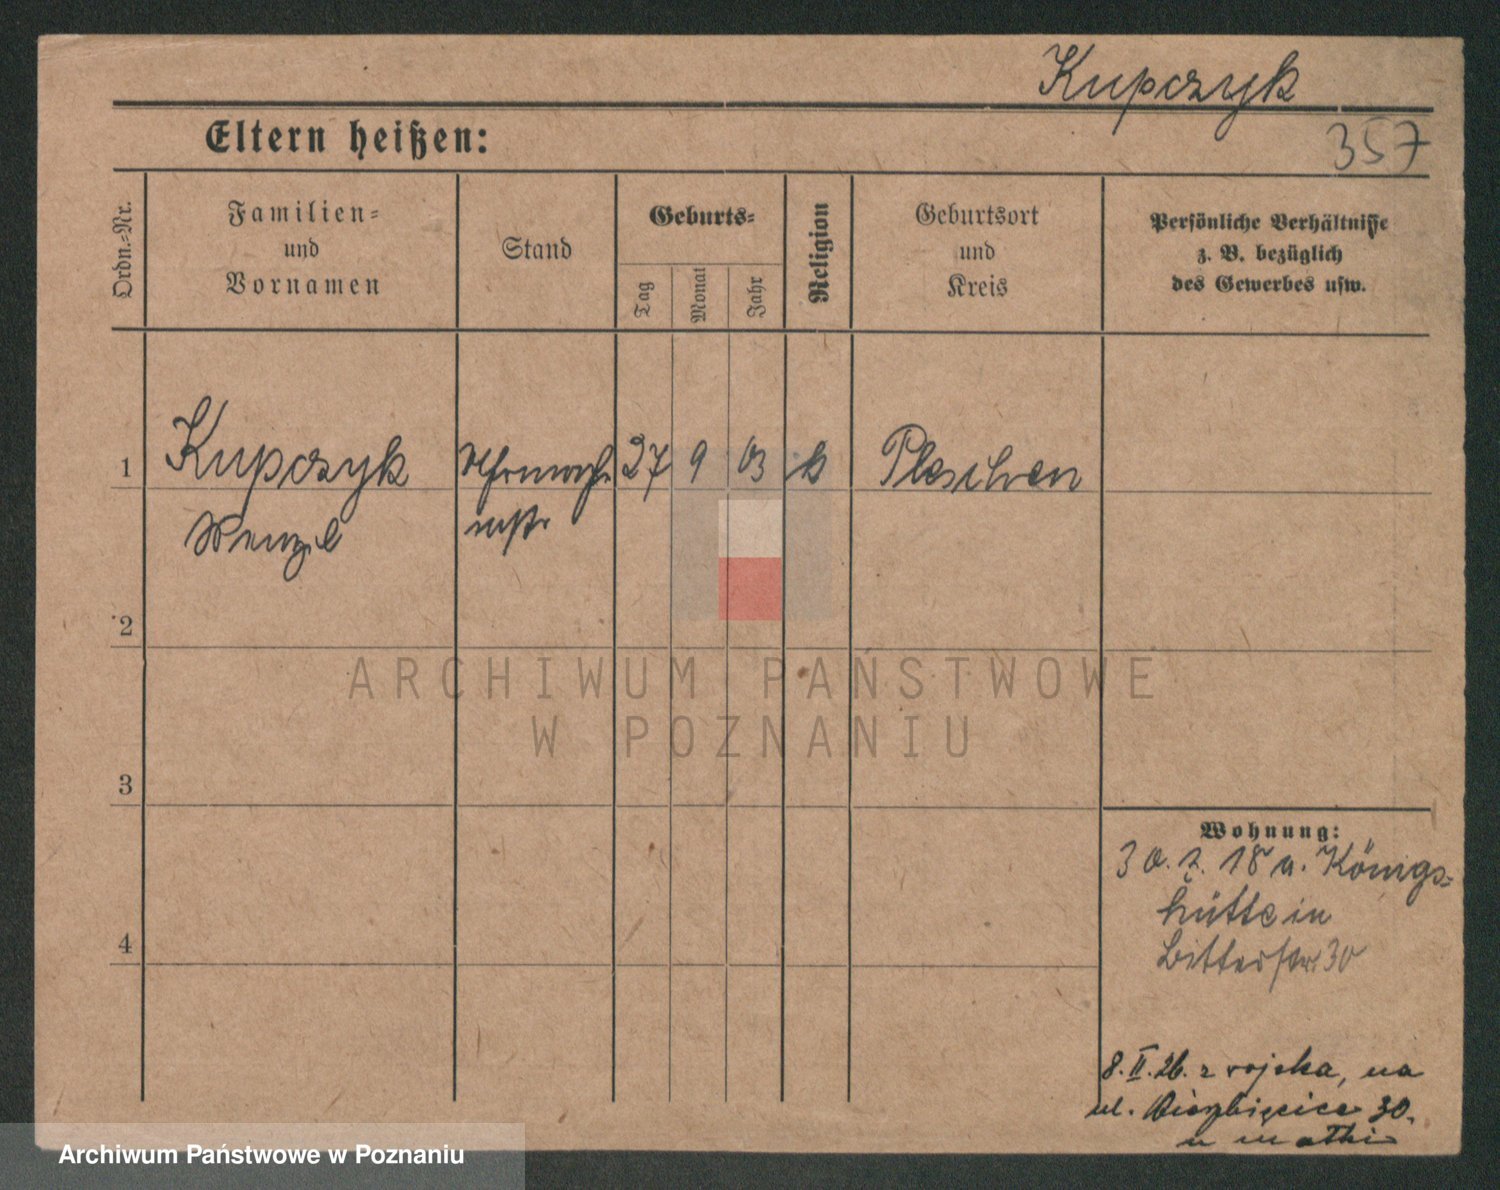 Kupczyk
Eltern heißen:
357
Ordn.-Nr.
Familien-
und
Vornamen
Stand
Geburts-
Tag
Monat
Jahr
Religion
Geburtsort
und
Kreis
Persönliche Verhältnisse
z. B. bezüglich
des Gewerbes usw.
1 Kupczyk 27 9 03 k Pleschen
Wenzel mstr
2
3
4
ARCHIWUM PAŃSTWOWE
W POZNANIU
Wohnung:
30. 7. 18 a. Königs-
hütte in
Bitterstr 30
8. II. 26. z wojska, na
ul. 30.
u matki
Archiwum Państwowe w Poznaniu